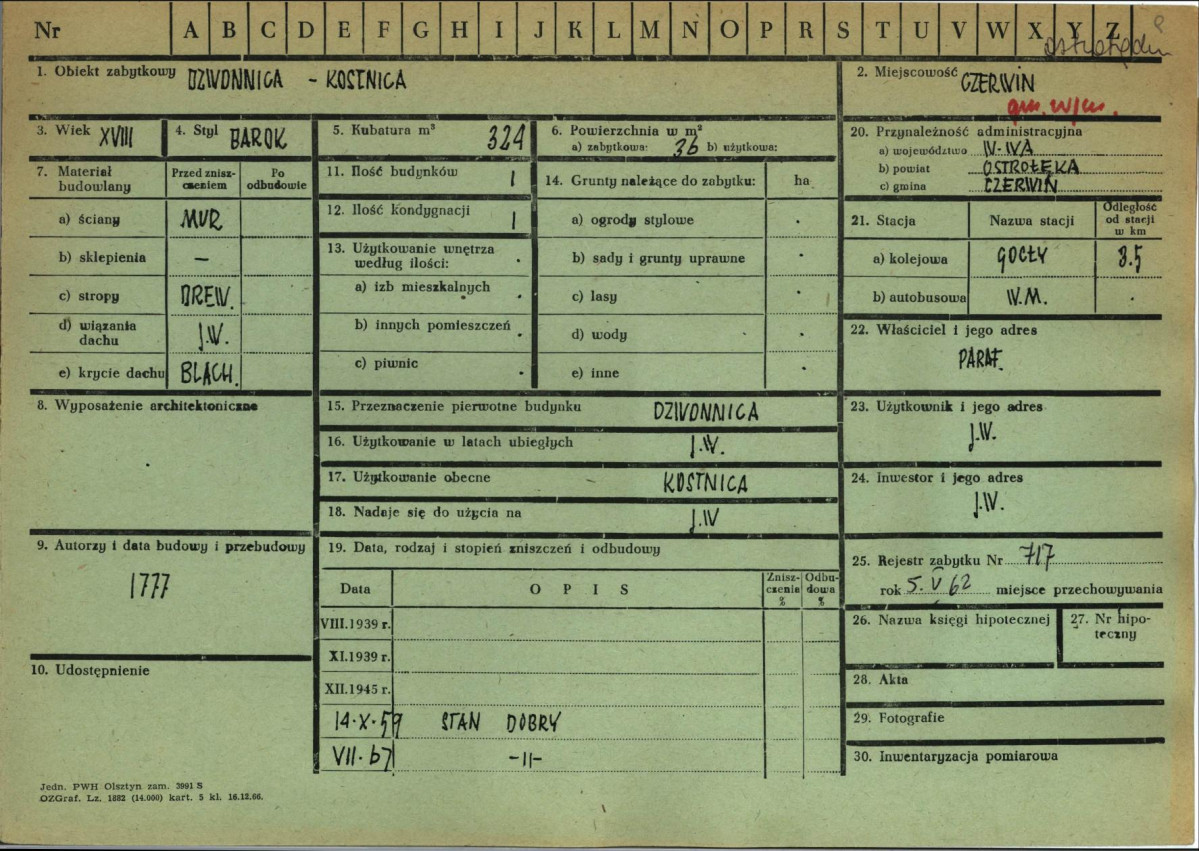 Nr A B C D E F G H I J K L M N O P R S T U V W X Y Z
1. Obiekt zabytkowy DZWONNICA - KOSTNICA
2. Miejscowość CZERWIN
gm. w/m.
3. Wiek XVIII
4. Styl BAROK
5. Kubatura m³ 324
6. Powierzchnia w m²
a) zabytkowa: 36 b) użytkowa:
7. Materiał budowlany
Przed zniszczeniem
Po odbudowie
a) ściany MUR
b) sklepienia —
c) stropy DREW.
d) wiązania dachu J.W.
e) krycie dachu BLACH.
8. Wyposażenie architektoniczne
9. Autorzy i data budowy i przebudowy
1777
10. Udostępnienie
11. Ilość budynków 1
12. Ilość kondygnacji 1
13. Użytkowanie wnętrza według ilości:
a) izb mieszkalnych
b) innych pomieszczeń
c) piwnic
14. Grunty należące do zabytku: ha
a) ogrody stylowe
b) sady i grunty uprawne
c) lasy
d) wody
e) inne
15. Przeznaczenie pierwotne budynku DZWONNICA
16. Użytkowanie w latach ubiegłych J.W.
17. Użytkowanie obecne KOSTNICA
18. Nadaje się do użycia na J.W
19. Data, rodzaj i stopień zniszczeń i odbudowy
Data OPIS Zniszczenia % Odbudowa %
VIII.1939 r.
XI.1939 r.
XII.1945 r.
14.X.59 STAN DOBRY
VII.67 -II-
20. Przynależność administracyjna
a) województwo W-WA
b) powiat OSTROŁĘKA
c) gmina CZERWIN
21. Stacja Nazwa stacji Odległość od stacji w km
a) kolejowa GOCŁY 3.5
b) autobusowa W.M.
22. Właściciel i jego adres
PARAF.
23. Użytkownik i jego adres
J.W.
24. Inwestor i jego adres
J.W.
25. Rejestr zabytku Nr 717
rok 5. V 62 miejsce przechowywania
26. Nazwa księgi hipotecznej
27. Nr hipoteczny
28. Akta
29. Fotografie
30. Inwentaryzacja pomiarowa
Jedn. PWH Olsztyn zam. 3991 S
OZGraf. Lz. 1882 (14.000) kart. 5 kl. 16.12.66.